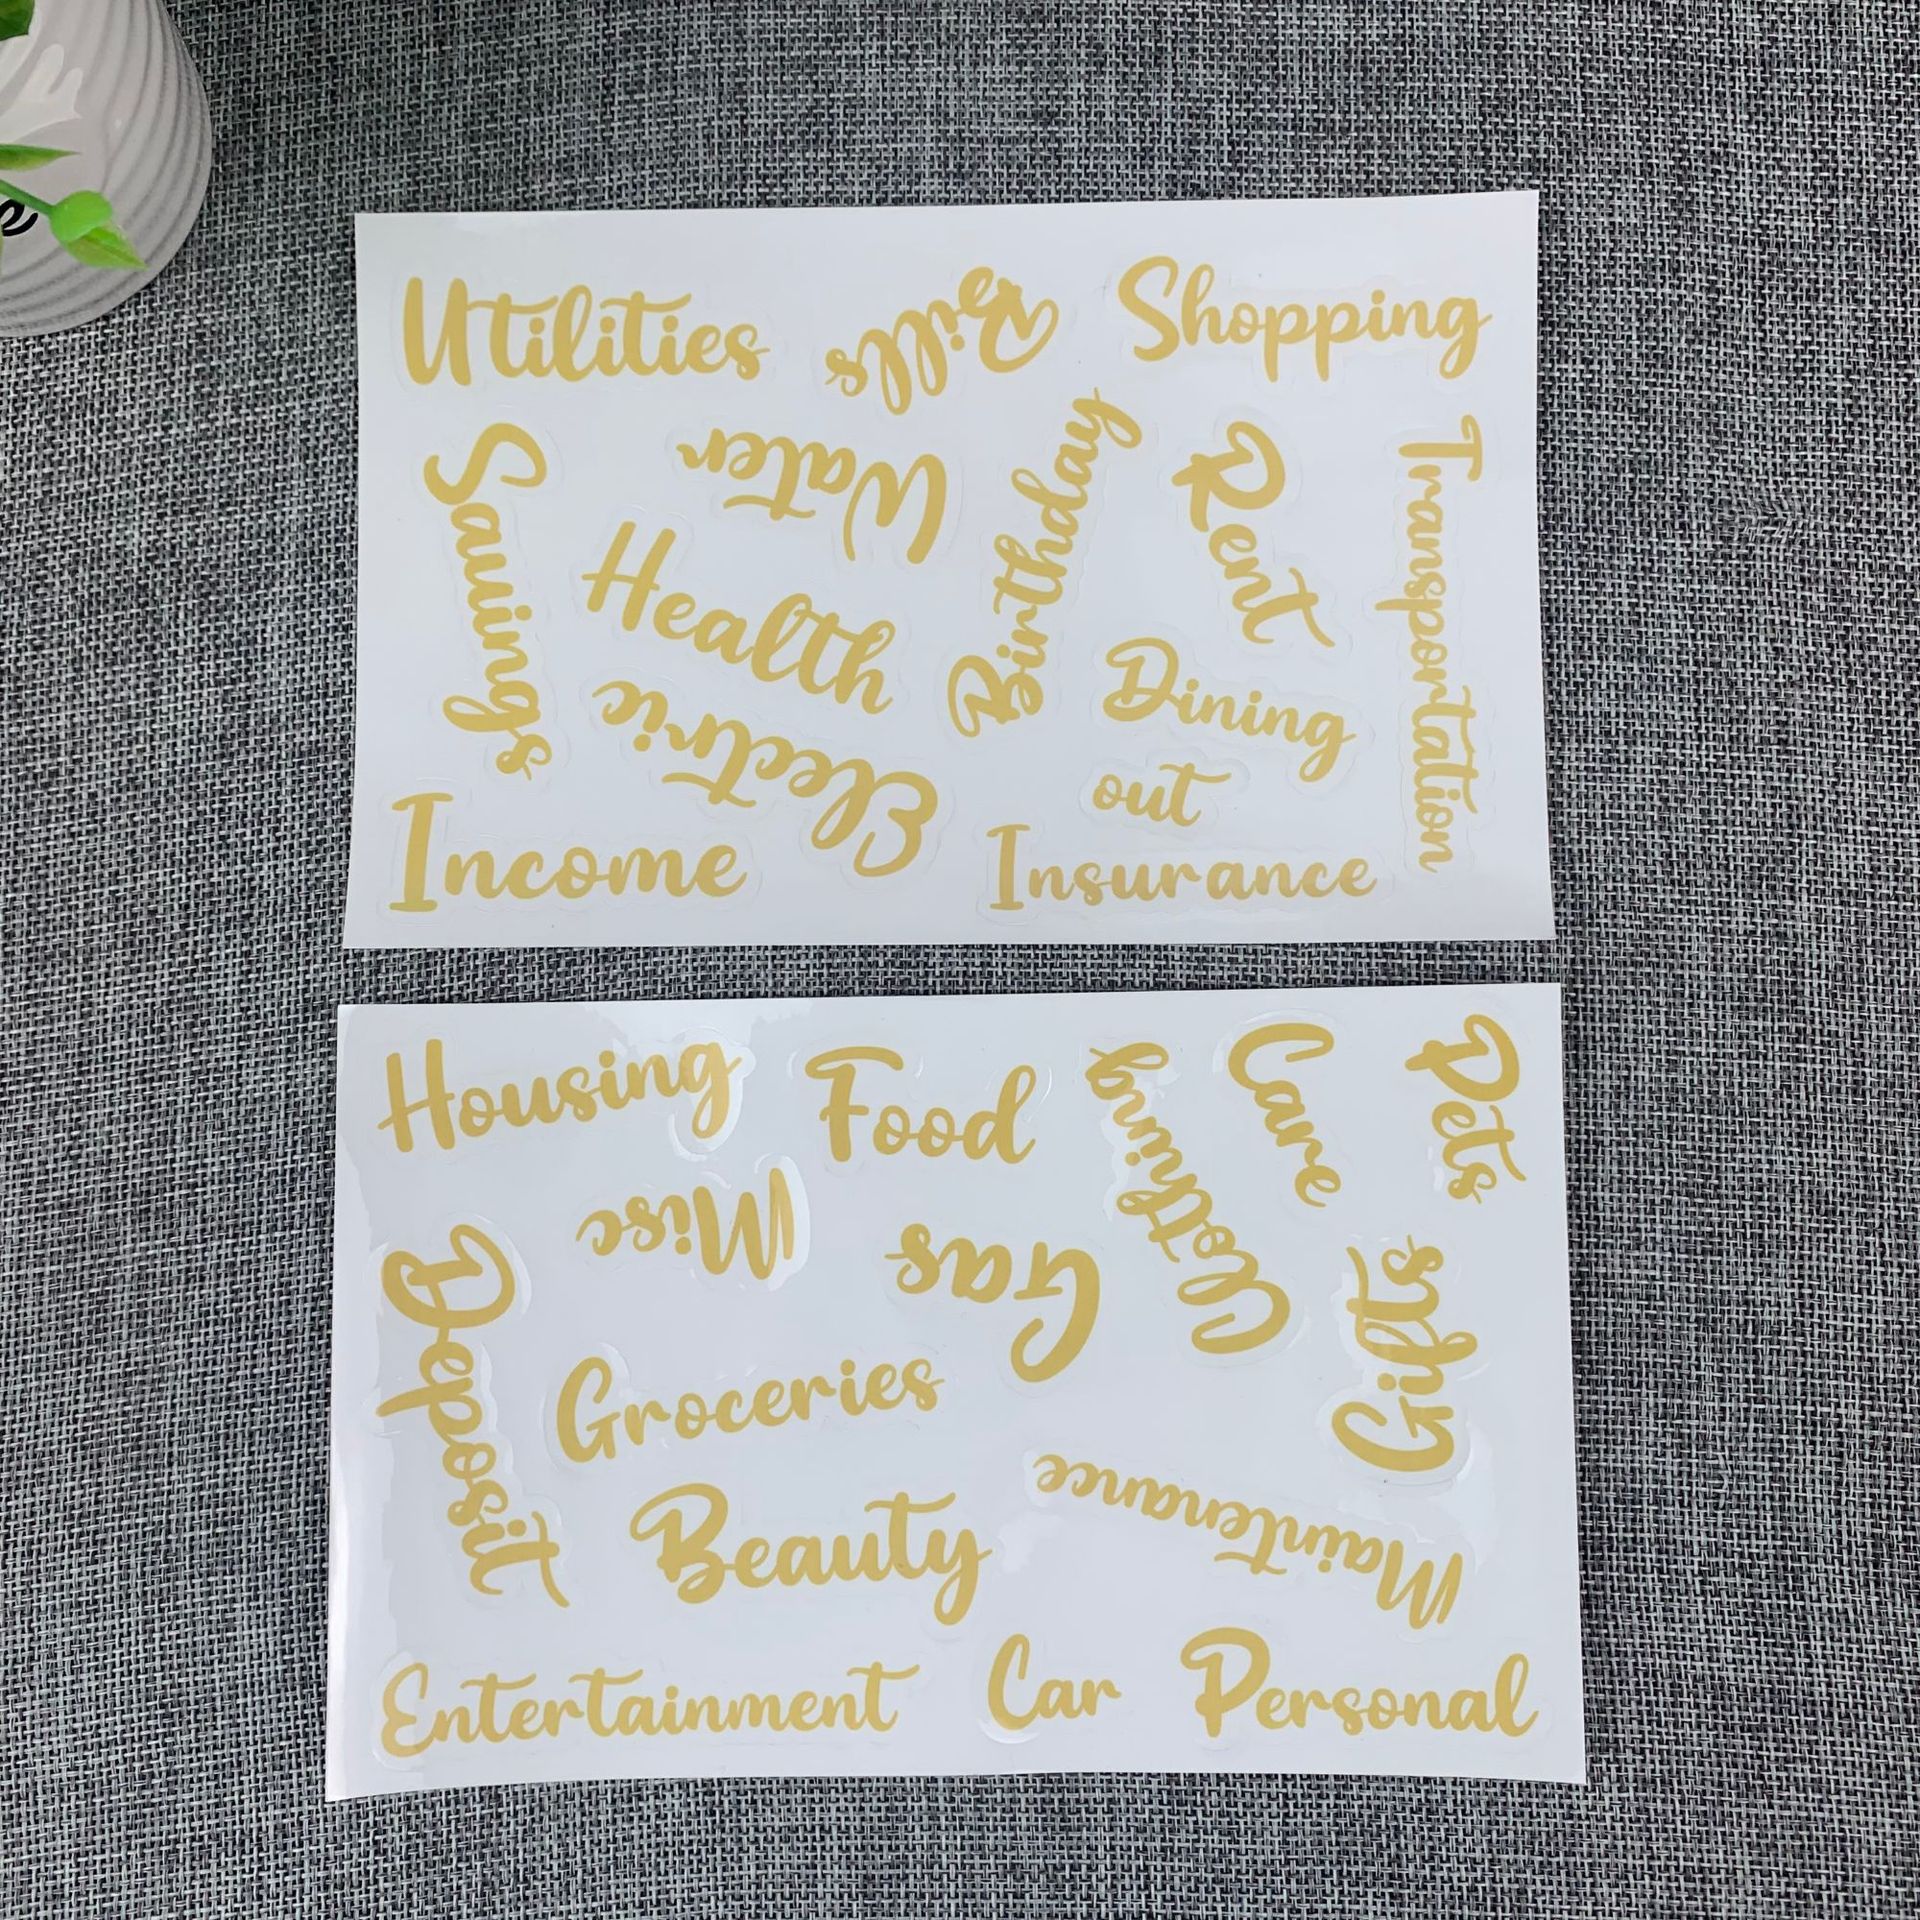 Utilities
Bills
Shopping
Savings
Water
Birthday
Rent
Transportation
Health
Electric
Dining
out
Income
Insurance
Housing
Food
Clothing
Care
Pets
Misc
Gas
Deposit
Gifts
Groceries
Maintenance
Beauty
Entertainment
Car
Personal